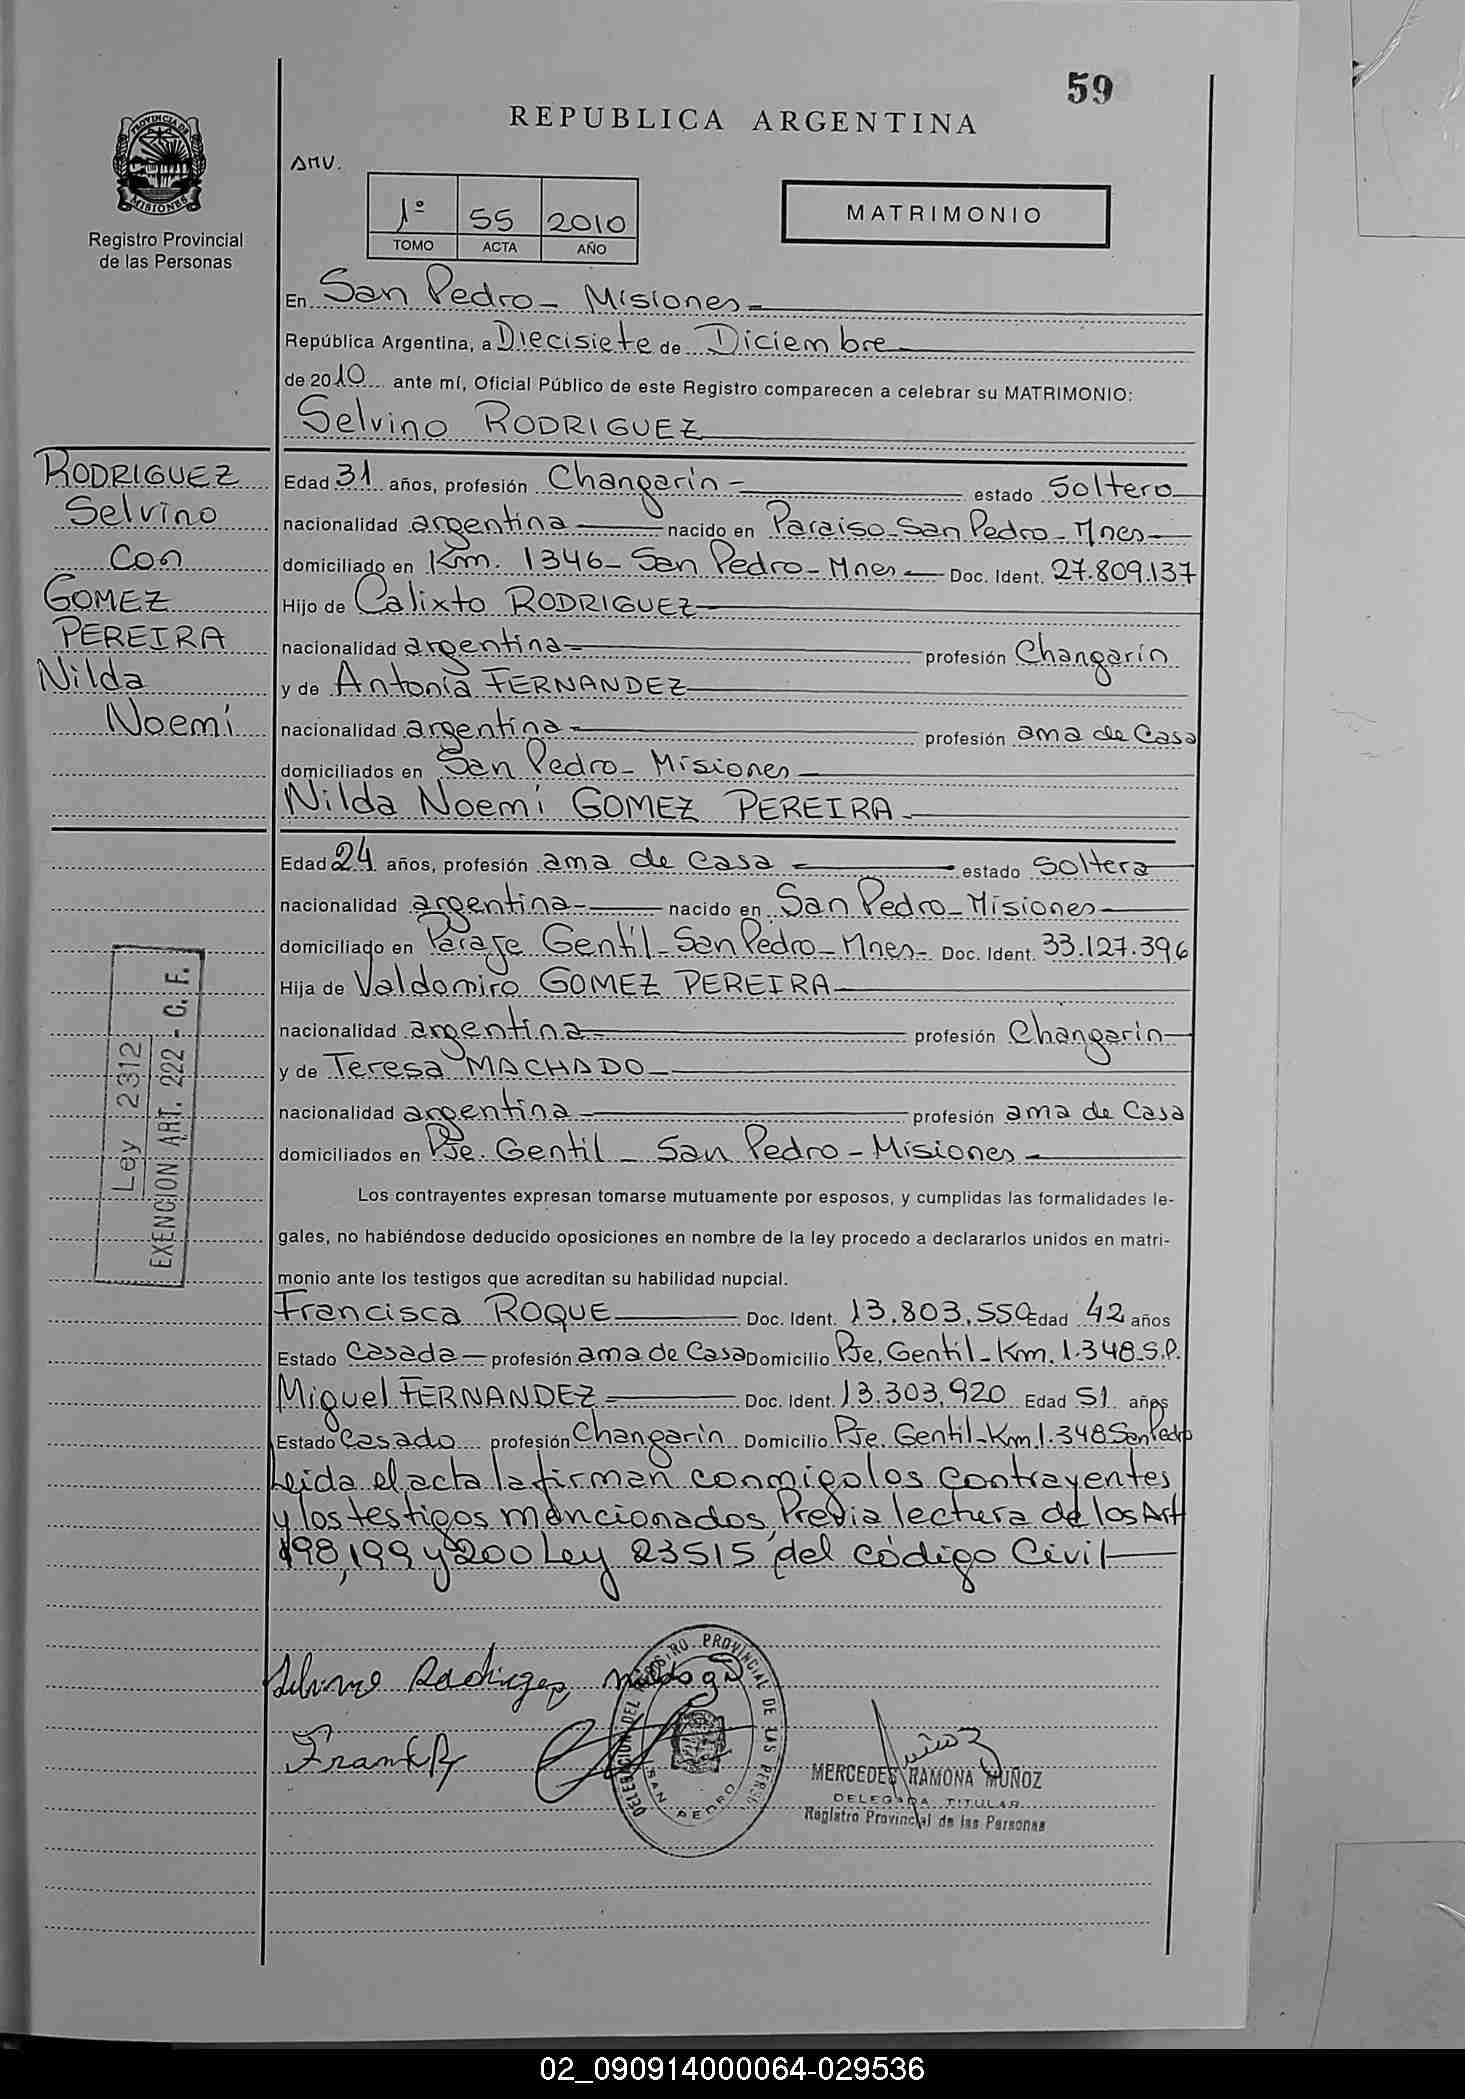 59
REPUBLICA ARGENTINA
PROVINCIA DE
MISIONES
Registro Provincial
de las Personas
AMV.
1º 55 2010
TOMO ACTA AÑO
MATRIMONIO
En San Pedro - Misiones
República Argentina, a Diecisiete de Diciembre
de 2010 ante mí, Oficial Público de este Registro comparecen a celebrar su MATRIMONIO:
Selvino RODRIGUEZ
RODRIGUEZ
Selvino
con
GOMEZ
PEREIRA
Nilda
Noemí
Edad 31 años, profesión Changarín - estado Soltero
nacionalidad argentina nacido en Paraiso - San Pedro - Mnes
domiciliado en Km. 1346 - San Pedro - Mnes Doc. Ident. 27.809.137
Hijo de Calixto RODRIGUEZ
nacionalidad argentina profesión Changarín
y de Antonia FERNANDEZ
nacionalidad argentina profesión ama de Casa
domiciliados en San Pedro - Misiones
Nilda Noemí GOMEZ PEREIRA
Edad 24 años, profesión ama de casa estado soltera
nacionalidad argentina nacido en San Pedro - Misiones
domiciliado en Paraje Gentil - San Pedro - Mnes - Doc. Ident. 33.127.396
Hija de Valdomiro GOMEZ PEREIRA
nacionalidad argentina profesión Changarín
y de Teresa MACHADO
nacionalidad argentina profesión ama de Casa
domiciliados en Pje. Gentil - San Pedro - Misiones
Ley 2312
EXENCION ART. 222 - C. F.
Los contrayentes expresan tomarse mutuamente por esposos, y cumplidas las formalidades le-
gales, no habiéndose deducido oposiciones en nombre de la ley procedo a declararlos unidos en matri-
monio ante los testigos que acreditan su habilidad nupcial.
Francisca ROQUE Doc. Ident. 13.803.550 Edad 42 años
Estado Casada profesión ama de Casa Domicilio Pje. Gentil - Km. 1.348 - S.P.
Miguel FERNANDEZ Doc. Ident. 13.303.920 Edad 51 años
Estado Casado profesión Changarín Domicilio Pje. Gentil - Km 1.348 San Pedro
Leida el acta la firman conmigo los contrayentes
y los testigos mencionados, Previa lectura de los Art
198, 199 y 200 Ley 23515 del código Civil
Selvino Rodriguez
DELEGACION DEL REGISTRO PROVINCIAL DE LAS PERSO
SAN PEDRO
MERCEDES RAMONA MUÑOZ
DELEGADA TITULAR
Registro Provincial de las Personas
02_090914000064-029536